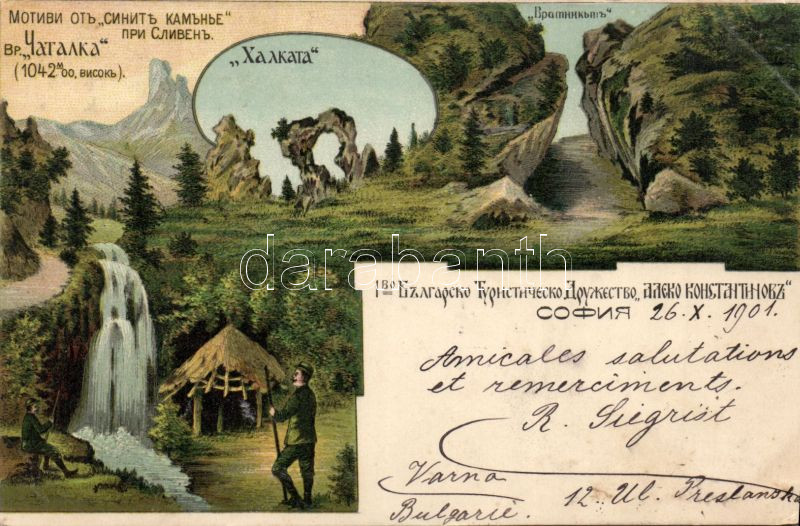 Мотиви отъ „Сините камъне“
при Сливенъ.
Вр. „Чаталка“
(1042 м/оо, високъ).
„Халката“
„Вратникътъ“
darabanth
1во Българско Туристическо Дружество „Алеко Константиновъ“
София 26.X.1901.
Amicales salutations
et remerciments.
R. Siegrist
Varna
Bulgarie. 12. Ul. Preslanska